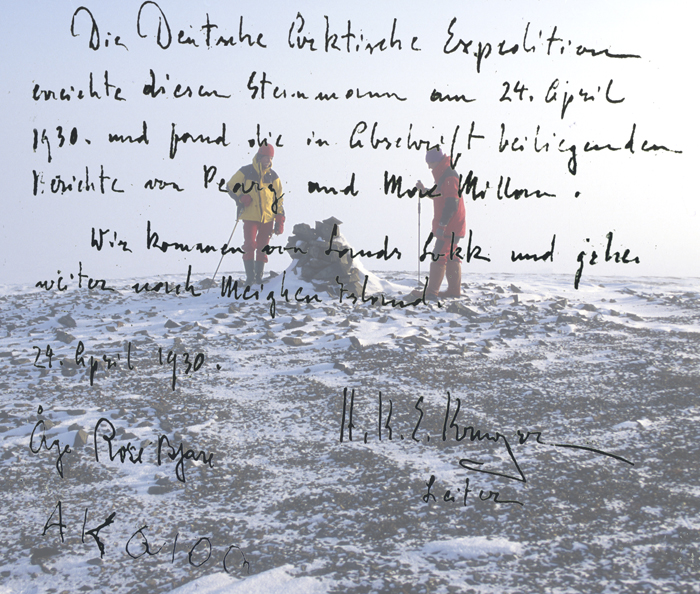 Die Deutsche Arktische Expedition
erreichte diesen Steinmann am 24. April
1930. und fand die in Abschrift beiliegenden
Berichte von Peary and Mac Millan.
Wir kommen von Lands Lokk und gehen
weiter nach Meighen Island.
24. April 1930.
H. K. E. Krueger
Åge Rose Bjare
Leiter
AKQIOQ